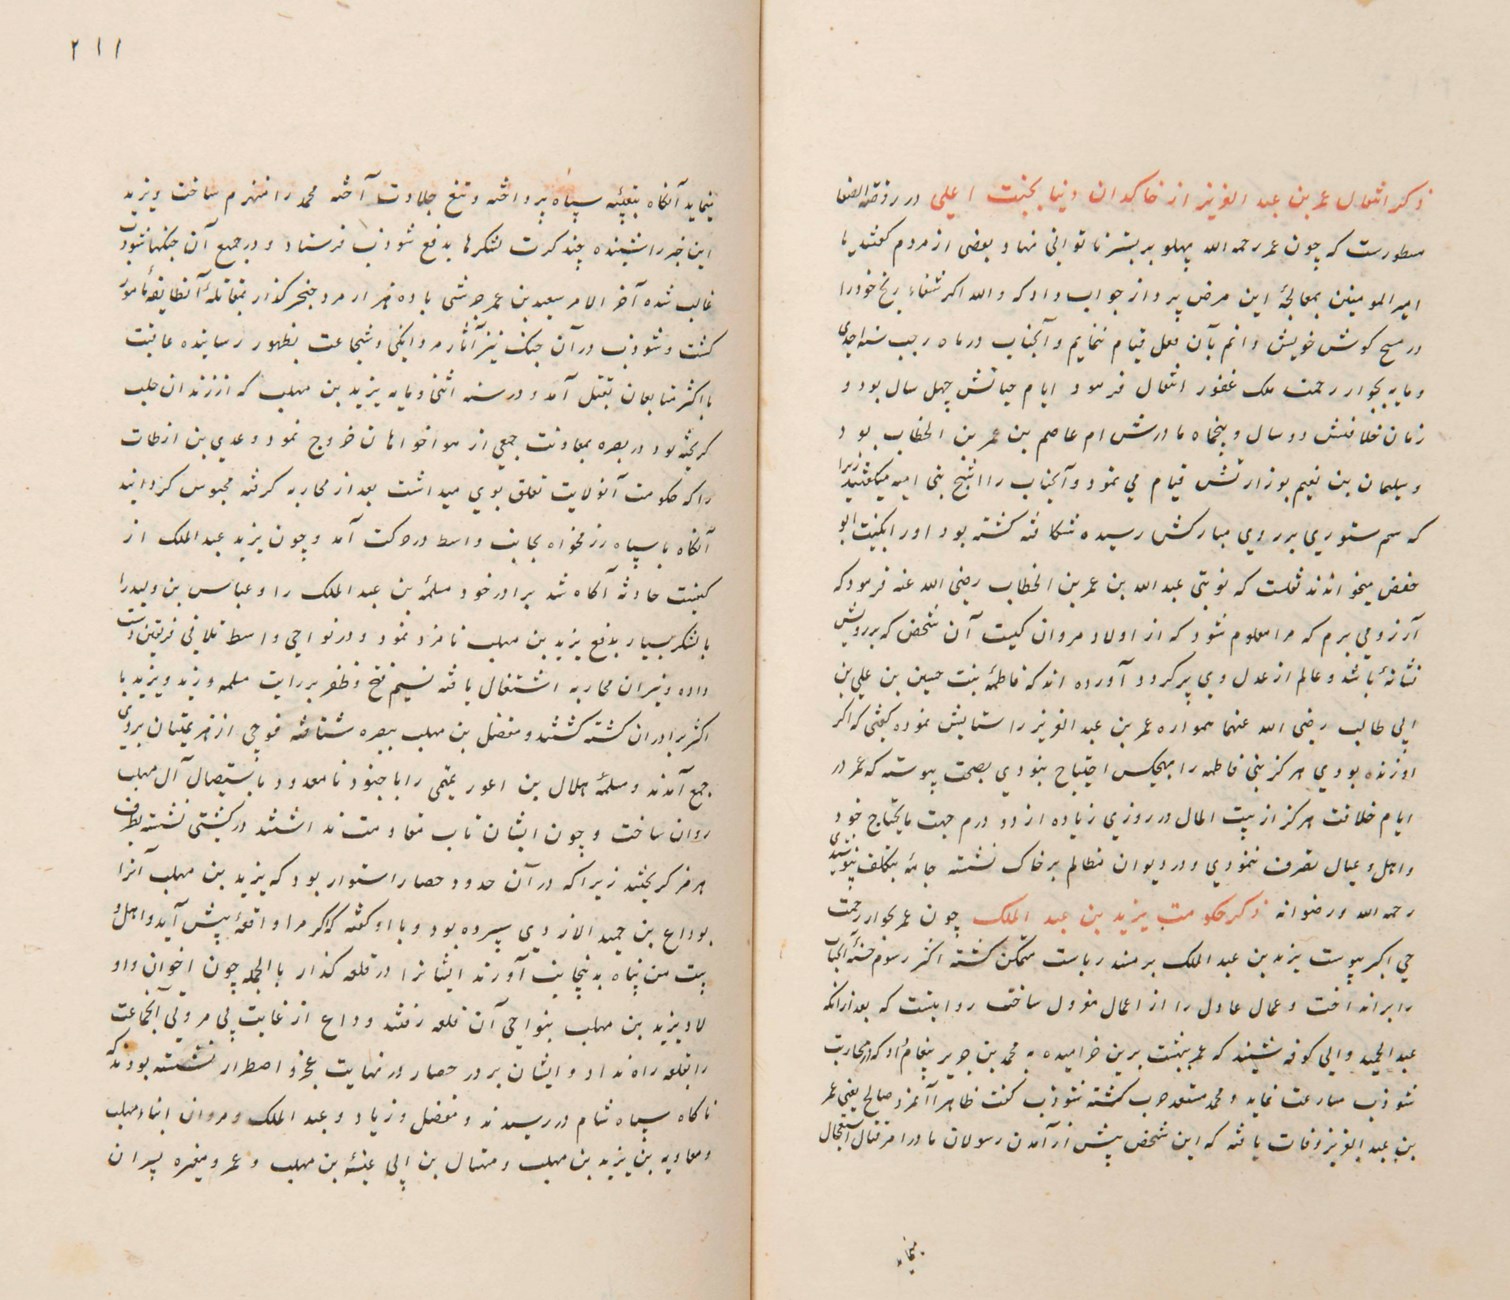 ذکر انتقال عمر بن عبد العزیز از خاکدان دنیا بجنت اعلی در روضة الصفا
مسطورست که چون عمر رحمه الله پهلو بر بستر ناتوانی نهاد بعضی از مردم گفتند یا
امیر المومنین بمعالجهٔ این مرض پرداز جواب داد که والله اگر شفاء رنج خود را
در مسح گوش خویش دانم بآن فعل قیام ننمایم و آنجناب در ماه رجب سنه احدی
و مایه بجوار رحمت ملک غفور انتقال فرمود ایام حیاتش چهل سال بود و
زمان خلافتش دو سال و پنجماه مادرش ام عاصم بن عمر بن الخطاب بود
و سلیمان بن نعیم بوزارتش قیام می نمود و آنجناب را اشج بنی امیه میگفتند زیرا
که سم ستوری بر روی مبارکش رسیده شکافته گشته بود او را بکنیت ابو
حفص میخواندند نقلست که نوبتی عبد الله بن عمر بن الخطاب رضی الله عنه فرمود که
آرزو می برم که مرا معلوم شود که از اولاد مروان کیست آن شخص که بر رویش
نشانهٔ باشد و عالم از عدل وی پر گردد آورده اند که فاطمهٔ بنت حسین بن علی بن
ابی طالب رضی الله عنهما همواره عمر بن عبد العزیز را ستایش نموده گفتی که اگر
او زنده بودی هرگز بنی فاطمه را بهیچکس احتیاج نبودی بصحت پیوسته که عمر در
ایام خلافت هرگز از بیت المال در روزی زیاده از دو درم جهت مایحتاج خود
و اهل و عیال تصرف ننمودی و در دیوان مظالم بر خاک نشسته جامهٔ بتکلف نپوشیدی
رحمه الله و رضوانه ذکر حکومت یزید بن عبد الملک چون عمر بجوار رحمت
حی اکبر پیوست یزید بن عبد الملک بر مسند ریاست متمکن گشته اکثر رسوم حسنهٔ آنجناب
را برانداخت و عمال عادل را از اعمال معزول ساخت روایتست که بعد از آنکه
عبد الحمید والی کوفه شنید که عمر ببهشت برین خرامیده به محمد بن جریر پیغام داد که در محاربت
شوذب مسارعت نماید و محمد مستعد حرب گشته شوذب گفت ظاهرا آنمرد صالح یعنی عمر
بن عبد العزیز وفات یافته که این شخص پیش از آمدن رسولان ما در امر قتال استعجال
مینماید
۲۱۱
ینماید آنگاه بتعبیهٔ سپاه پرداخته و تیغ جلادت آخته محمد را منهزم ساخت و یزید
این خبر را شنیده چند کرت لشکرها بدفع شوذب فرستاد و در جمیع آن جنگها شوذب
غالب شده آخر الامر سعید بن عمر جرشی با ده هزار مرد خنجرگذار بمقاتلهٔ آنطایفه مامور
گشت و شوذب در آن جنگ نیز آثار مردانگی و شجاعت بظهور رسانیده عاقبت
با اکثر متابعان بقتل آمد و در سنه اثنی و مایه یزید بن مهلب که از زندان حلب
گریخته بود در بصره بمعاونت جمعی از هواخواهان خروج نمود و عدی بن ارطات
را که حکومت آنولایت تعلق بوی میداشت بعد از محاربه گرفته محبوس گردانید
آنگاه با سپاه رزمخواه بجانب واسط در حرکت آمد و چون یزید عبد الملک از
کیفیت حادثه آگاه شد برادر خود مسلمهٔ بن عبد الملک را و عباس بن ولید را
با لشکر بسیار بدفع یزید بن مهلب نامزد نمود و در نواحی واسط تلاقی فریقین دست
داده و نیران محاربه اشتغال یافته نسیم فتح و ظفر بر رایت مسلمه وزید و یزید با
اکثر برادران کشته گشتند و مفضل بن مهلب ببصره شتافته فوجی از هزیمتیان بروی
جمع آمدند و مسلمهٔ هلال بن اعور تمیمی را با جنود نامعدود باستیصال آل مهلب
روان ساخت و چون ایشان تاب مقاومت نداشتند در کشتی نشسته بطرف
هرمز گریختند زیرا که در آن حدود حصار استوار بود که یزید بن مهلب آنرا
بوداع بن حمید الازدی سپرده بود و با او گفته که اگر مرا واقعهٔ پیش آید و اهل و
بیت من پناه بدینجانب آورند ایشانرا در قلعه گذار بالجمله چون اخوان و او
لاد یزید بن مهلب بنواحی آن قلعه رفتند وداع از غایت بی مروتی آنجماعت
را بقلعه راه نداد و ایشان بر در حصار در نهایت عجز و اضطرار نشسته بودند که
ناگاه سپاه شام در رسیدند و مفضل و زیاد و عبد الملک و مروان ابناء مهلب
و معاویه بن یزید بن مهلب و منهال بن ابی عیینهٔ بن مهلب و عمر و مغیره پسران